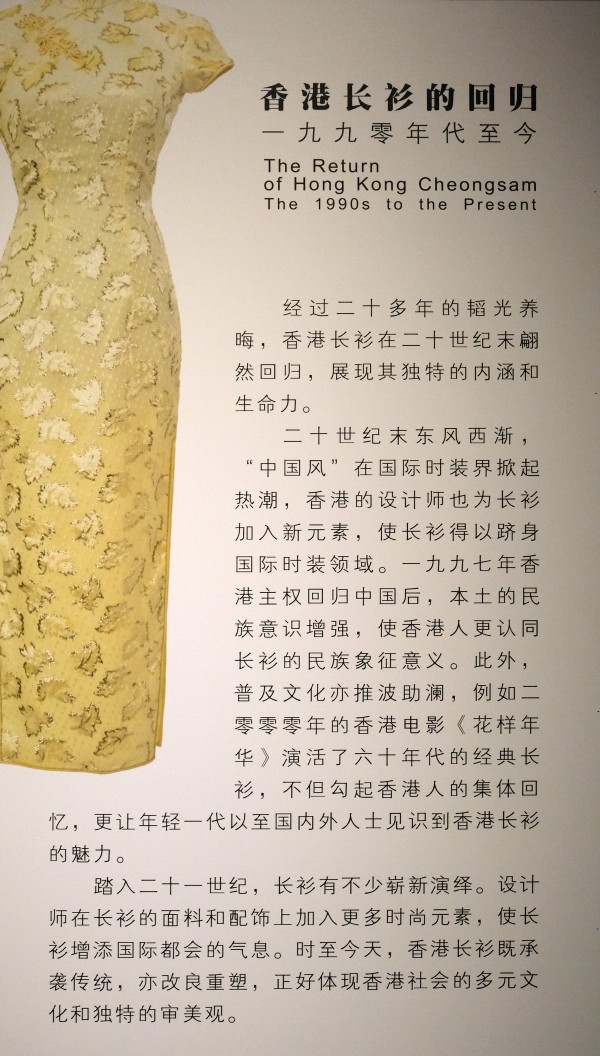 香港长衫的回归
一九九零年代至今
The Return
of Hong Kong Cheongsam
The 1990s to the Present
经过二十多年的韬光养
晦，香港长衫在二十世纪末翩
然回归，展现其独特的内涵和
生命力。
二十世纪末东风西渐，
“中国风”在国际时装界掀起
热潮，香港的设计师也为长衫
加入新元素，使长衫得以跻身
国际时装领域。一九九七年香
港主权回归中国后，本土的民
族意识增强，使香港人更认同
长衫的民族象征意义。此外，
普及文化亦推波助澜，例如二
零零零年的香港电影《花样年
华》演活了六十年代的经典长
衫，不但勾起香港人的集体回
忆，更让年轻一代以至国内外人士见识到香港长衫
的魅力。
踏入二十一世纪，长衫有不少崭新演绎。设计
师在长衫的面料和配饰上加入更多时尚元素，使长
衫增添国际都会的气息。时至今天，香港长衫既承
袭传统，亦改良重塑，正好体现香港社会的多元文
化和独特的审美观。